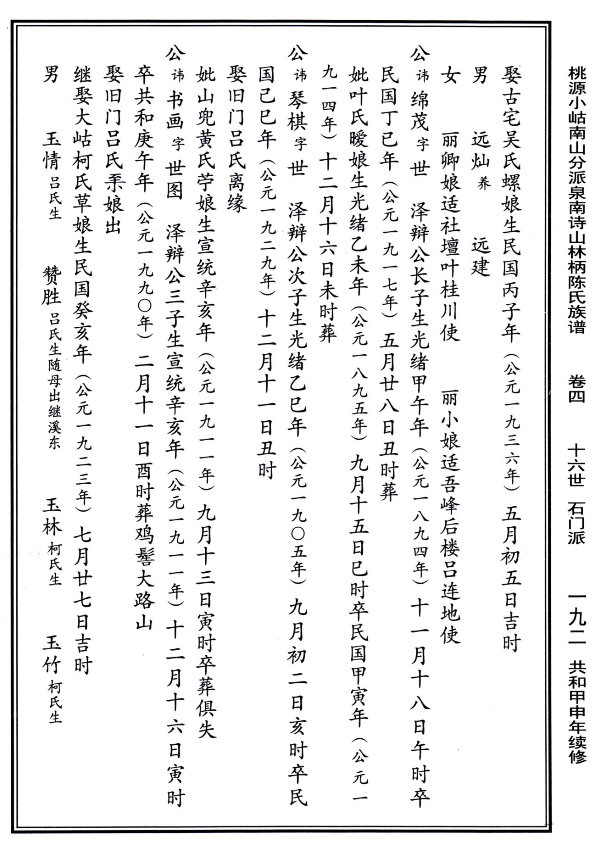 桃源小岵南山分派泉南诗山林柄陈氏族谱 卷四 十六世 石门派 一九二 共和甲申年续修
娶古宅吴氏螺娘生民国丙子年（公元一九三六年）五月初五日吉时
男 远灿养 远建
女 丽卿娘适社壇叶桂川使 丽小娘适吾峰后楼吕连地使
公讳绵茂字世 泽辩公长子生光绪甲午年（公元一八九四年）十一月十八日午时卒
民国丁巳年（公元一九一七年）五月廿八日丑时葬
妣叶氏暧娘生光绪乙未年（公元一八九五年）九月十五日巳时卒民国甲寅年（公元一
九一四年）十二月十六日未时葬
公讳琴棋字世 泽辩公次子生光绪乙巳年（公元一九〇五年）九月初二日亥时卒民
国己巳年（公元一九二九年）十二月十一日丑时
娶旧门吕氏离缘
妣山兜黄氏苧娘生宣统辛亥年（公元一九一一年）九月十三日寅时卒葬俱失
公讳书画字世图 泽辩公三子生宣统辛亥年（公元一九一一年）十二月十六日寅时
卒共和庚午年（公元一九九〇年）二月十一日酉时葬鸡髻大路山
娶旧门吕氏釆娘出
继娶大岵柯氏草娘生民国癸亥年（公元一九二三年）七月廿七日吉时
男 玉情吕氏生 赞胜吕氏生随母出继溪东 玉林柯氏生 玉竹柯氏生